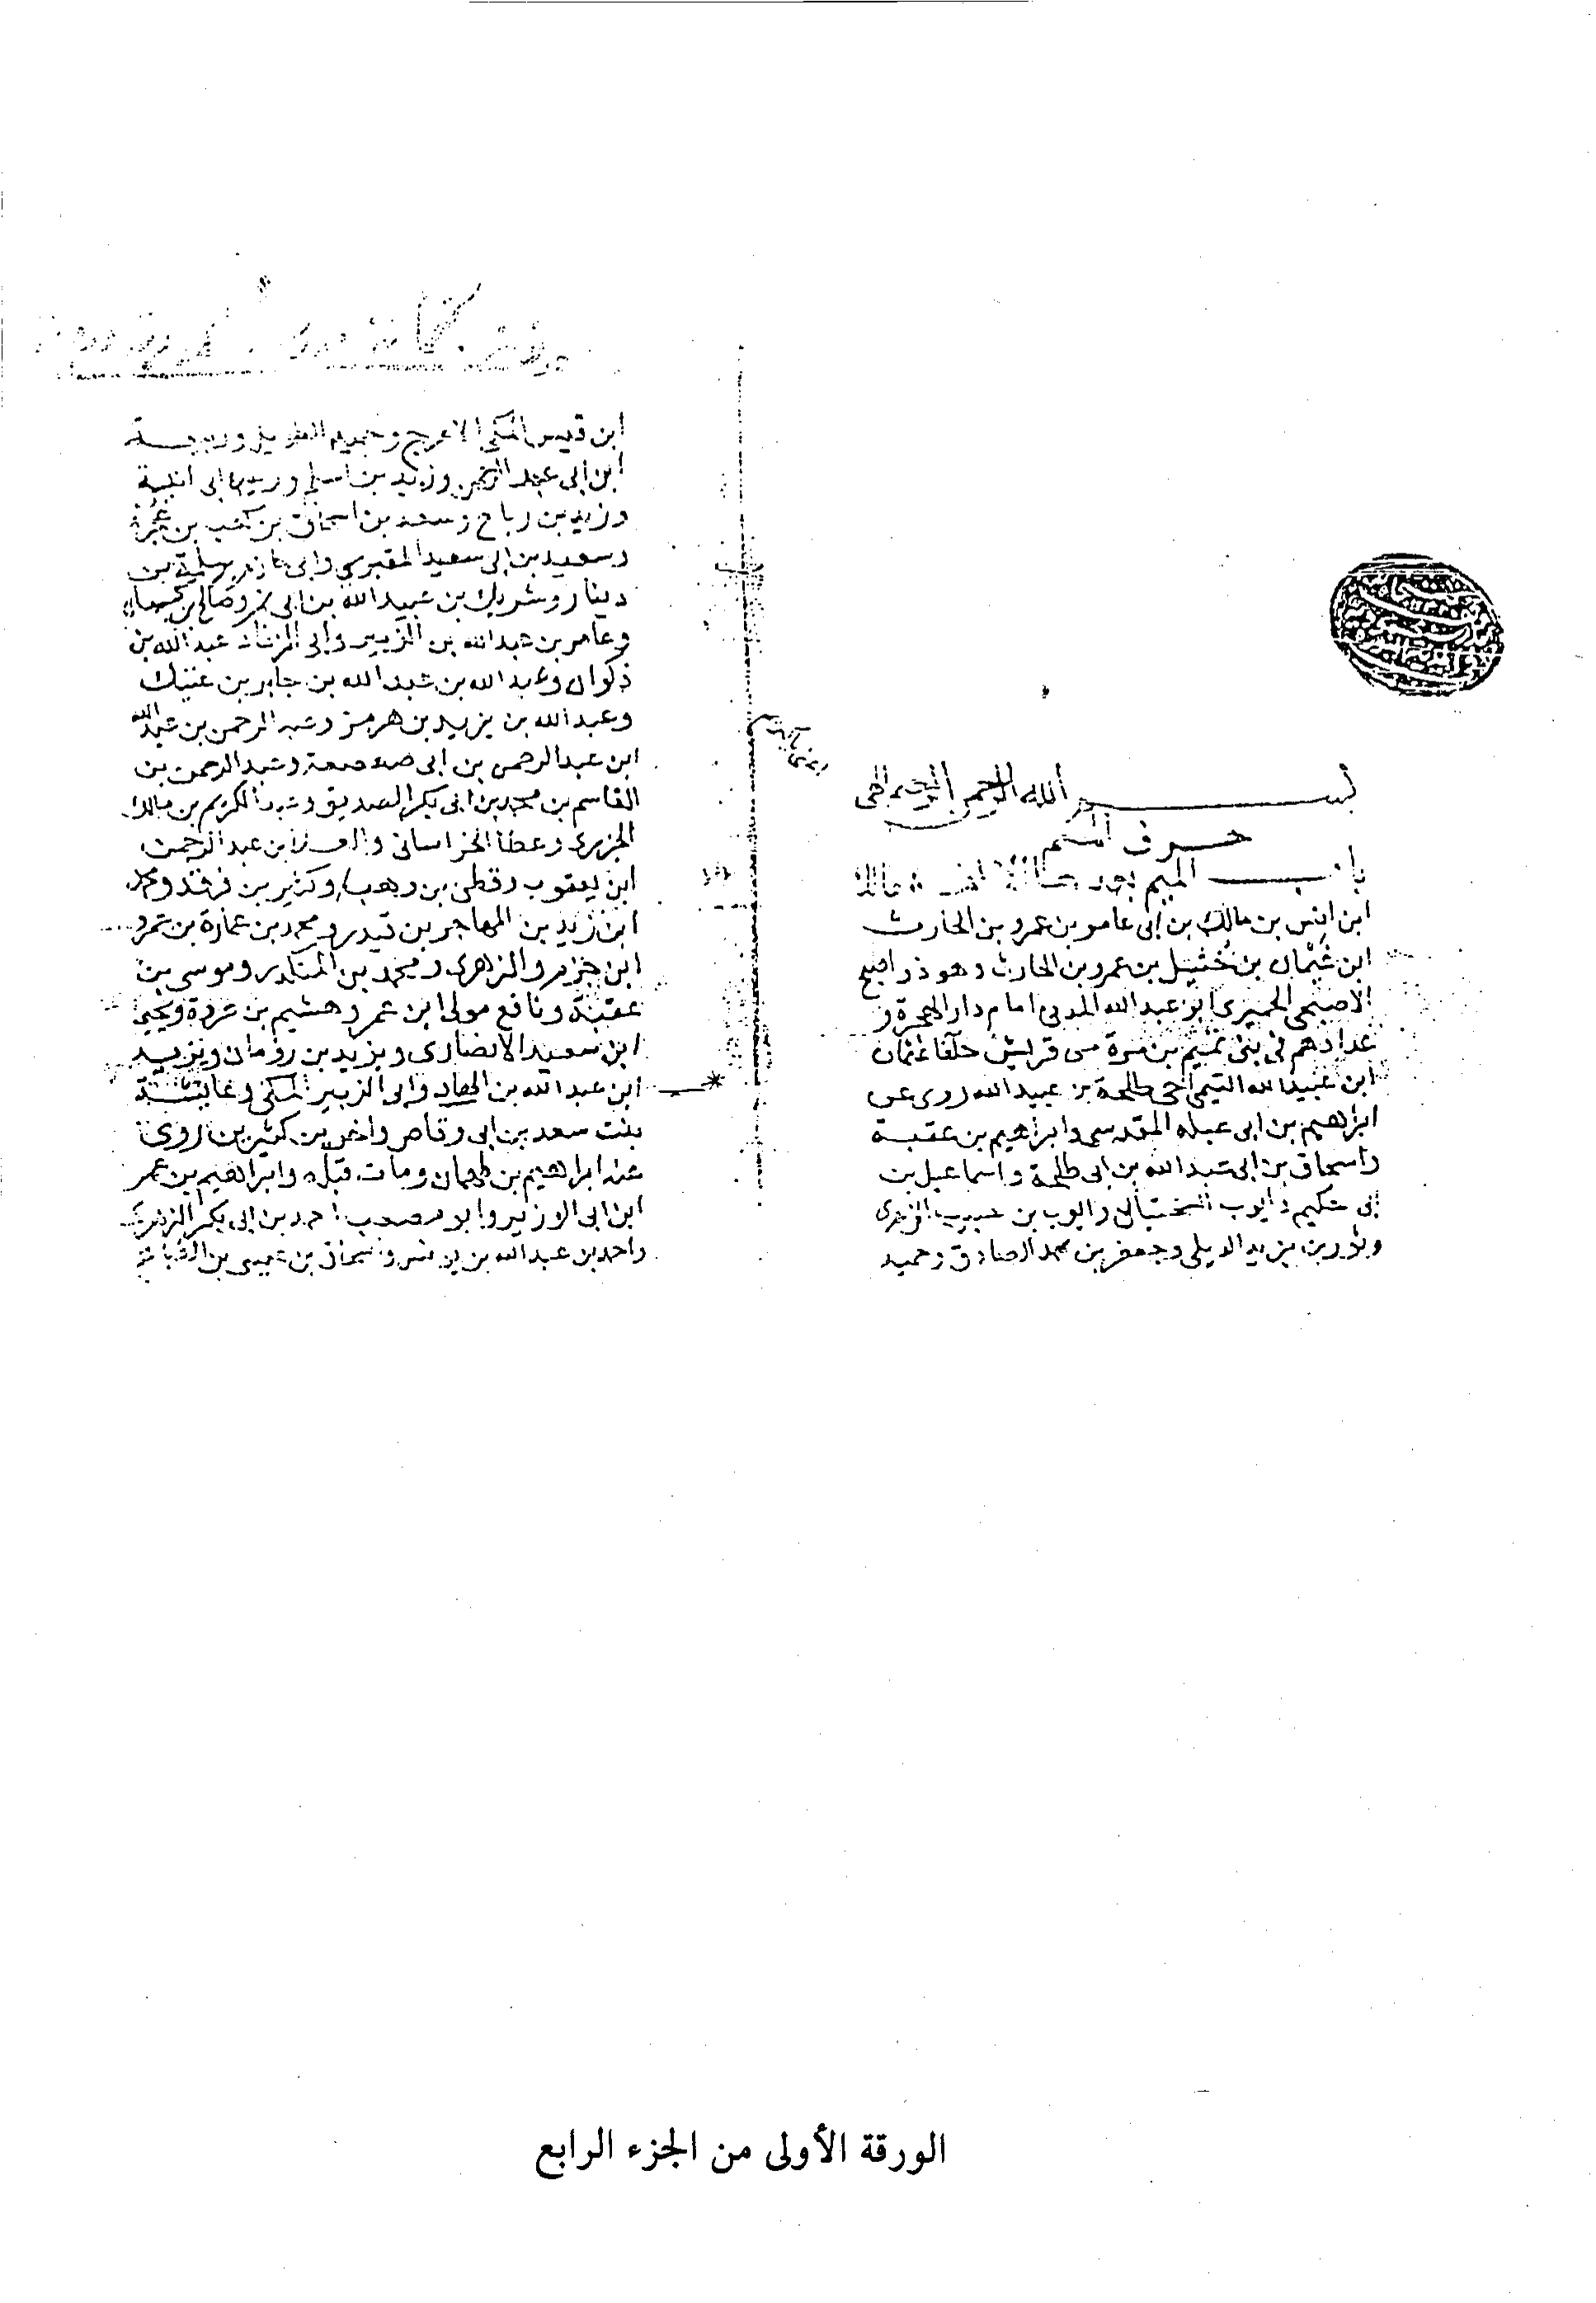 بسم الله الرحمن الرحيم
حرف الميم
باب الميم بعدها مالك
ابن انس بن مالك بن ابى عامر بن عمرو بن الحارث
ابن غيمان بن خثيل بن عمرو بن الحارث وهو ذو اصبح
الاصبحى الحميرى ابو عبد الله المدنى امام دار الهجرة و
عدادهم فى بنى تميم بن مرة من قريش حلفا عثمان
ابن عبيد الله التيمى اخى طلحة بن عبيد الله روى عن
ابراهيم بن ابى عبله المقدسى وابراهيم بن عقبة
واسحاق بن ابى عبد الله بن ابى طلحة واسماعيل بن
ابى حكيم وايوب السختيانى وايوب بن حبيب الزهرى
وثور بن يزيد الديلى وجعفر بن محمد الصادق وحميد
ابن قيس المكى الاعرج وحميد الطويل وربيعة
ابن ابى عبد الرحمن وزيد بن اسلم وزيد بن ابى انيسة
وزيد بن رباح وسعد بن اسحاق بن كعب بن عجرة
وسعيد بن ابى سعيد المقبرى وابى حازم سلمة بن
دينار وشريك بن عبد الله بن ابى نمر وصالح بن كيسان
وعامر بن عبد الله بن الزبير وابى الزناد عبد الله بن
ذكوان وعبد الله بن عبد الله بن جابر بن عتيك
وعبد الله بن يزيد بن هرمز وعبد الرحمن بن عبد الله
ابن عبد الرحمن بن ابى صعصعة وعبد الرحمن بن
القاسم بن محمد بن ابى بكر الصديق وعبد الكريم بن مالك
الجزرى وعطا الخراسانى والعلا بن عبد الرحمن
ابن يعقوب وقطن بن وهب وكثير بن فرقد ومحمد
ابن زيد بن المهاجر بن قنفد ومحمد بن عمارة بن عمرو
ابن حزم والزهرى ومحمد بن المنكدر وموسى بن
عقبة ونافع مولى ابن عمر وهشيم بن عروة ويحيى
ابن سعيد الانصارى ويزيد بن رومان ويزيد
ابن عبد الله بن الهاد وابى الزبير المكى وعايشة
بنت سعد بن ابى وقاص واخرين كثيرين روى
عنه ابراهيم بن طهمان ومات قبله وابراهيم بن عمر
ابن ابى الوزير وابو مصعب احمد بن ابى بكر الزهرى
واحمد بن عبد الله بن يونس واسحاق بن عيسى بن الطباع
الورقة الأولى من الجزء الرابع